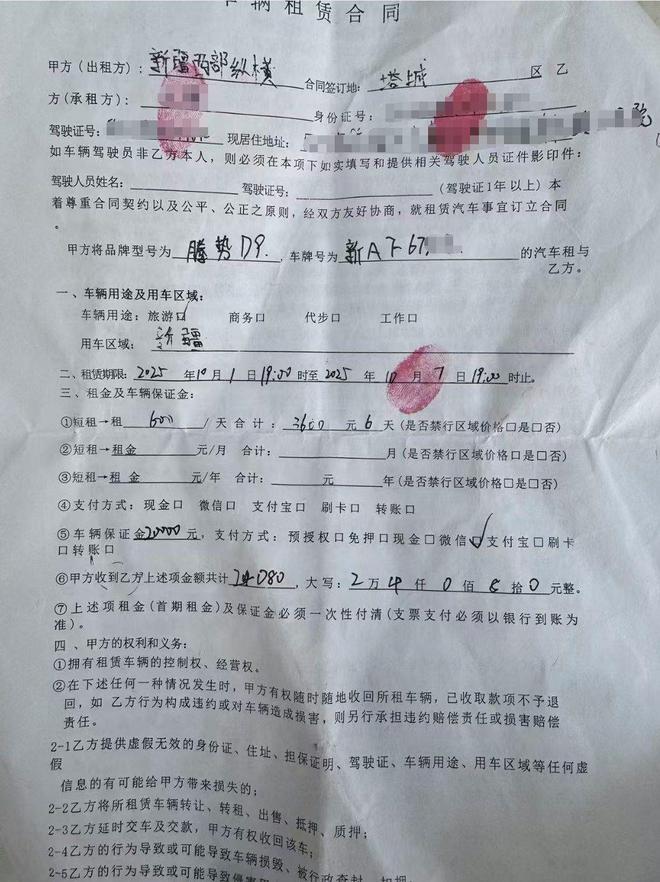 车辆租赁合同
甲方（出租方）：新疆西部纵横 合同签订地：塔城 区 乙
方（承租方）： 身份证号：
驾驶证号： 现居住地址： 院
如车辆驾驶员非乙方本人，则必须在本项下如实填写和提供相关驾驶人员证件影印件：
驾驶人员姓名： 驾驶证号： （驾驶证1年以上）本
着尊重合同契约以及公平、公正之原则，经双方友好协商，就租赁汽车事宜订立合同
。
甲方将品牌型号为 腾势D9. ，车牌号为 新AF67 的汽车租与
乙方。
一、车辆用途及用车区域：
车辆用途：旅游口 商务口 代步口 工作口
用车区域： 新疆
二、租赁期限：2025 年10月1日19:00时至2025年10月7日19:00时止。
三、租金及车辆保证金：
①短租→租 600 /天 合计： 3600 元 6 天（是否禁行区域价格口是口否）
②短租→租金 元/月 合计： 月（是否禁行区域价格口是口否）
③短租→租 金 元/年 合计： 元 年（是否禁行区域价格口是口否）
④支付方式：现金口 微信口 支付宝口 刷卡口 转账口
⑤车辆保证金20000元，支付方式：预授权口免押口现金口微信口支付宝口刷卡
口转账口
⑥甲方收到乙方上述项金额共计 24080 ，大写：2万4仟0佰8拾0元整。
⑦上述项租金（首期租金）及保证金必须一次性付清（支票支付必须以银行到账为
准）。
四、甲方的权利和义务：
①拥有租赁车辆的控制权、经营权。
②在下述任何一种情况发生时，甲方有权随时随地收回所租车辆，已收取款项不予退
回，如 乙方行为构成违约或对车辆造成损害，则另行承担违约赔偿责任或损害赔偿
责任。
2-1乙方提供虚假无效的身份证、住址、担保证明、驾驶证、车辆用途、用车区域等任何虚
假
信息的有可能给甲方带来损失的；
2-2乙方将所租赁车辆转让、转租、出售、抵押、质押；
2-3乙方延时交车及交款，甲方有权收回该车；
2-4乙方的行为导致或可能导致车辆损毁、被行政查封、扣押
2-5乙方的行为导致或可能导致